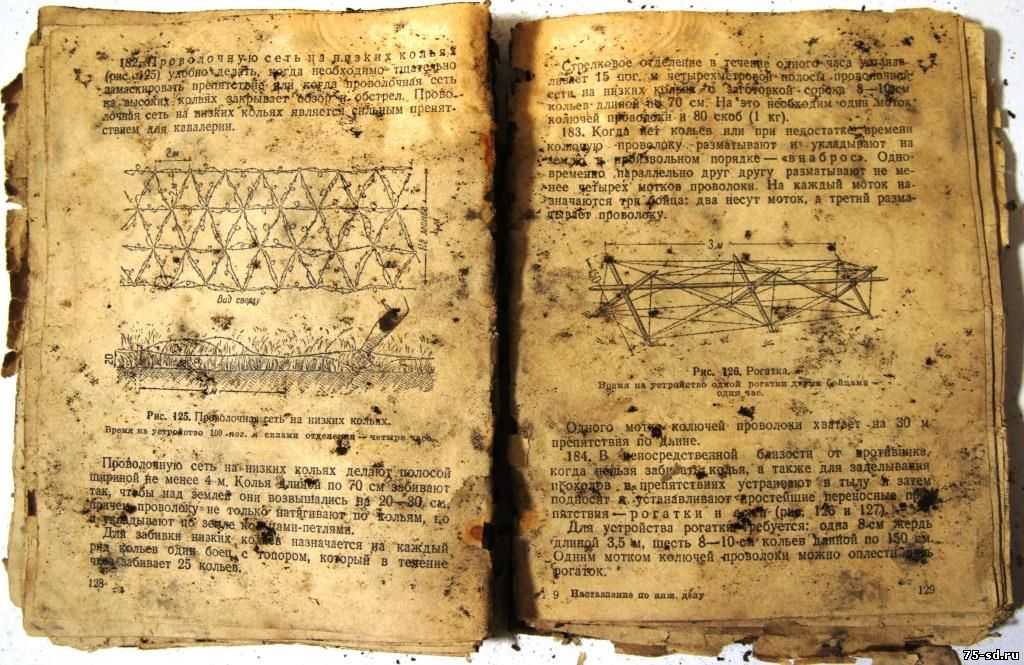 182. Проволочную сеть на низких кольях
(рис. 125) удобно делать, когда необходимо тщательно
замаскировать препятствие или когда проволочная сеть
на высоких кольях закрывает обзор и обстрел. Прово-
лочная сеть на низких кольях является сильным препят-
ствием для кавалерии.
2м
2м
На менее
4м
Вид сверху
20
Рис. 125. Проволочная сеть на низких кольях.
Время на устройство 100 пог. м силами отделения — четыре часа.
Проволочную сеть на низких кольях делают полосой
шириной не менее 4 м. Колья длиной по 70 см забивают
так, чтобы над землей они возвышались на 20—30 см,
причем проволоку не только натягивают по кольям, но
и укладывают по земле кольцами-петлями.
Для забивки низких кольев назначается на каждый
ряд кольев один боец с топором, который в течение
часа забивает 25 кольев.
128
Стрелковое отделение в течение одного часа устанав-
ливает 15 пог. м четырехметровой полосы проволочной
сети на низких кольях с заготовкой сорока 8—10-см
кольев длиной по 70 см. На это необходим один моток
колючей проволоки и 80 скоб (1 кг).
183. Когда нет кольев или при недостатке времени
колючую проволоку разматывают и укладывают на
землю в произвольном порядке — «внаброс». Одно-
временно параллельно друг другу разматывают не ме-
нее четырех мотков проволоки. На каждый моток на-
значаются три бойца: два несут моток, а третий разма-
тывает проволоку.
3м
Рис. 126. Рогатка.
Время на устройство одной рогатки двумя бойцами —
один час.
Одного мотка колючей проволоки хватает на 30 м
препятствия по длине.
184. В непосредственной близости от противника,
когда нельзя забивать колья, а также для заделывания
проходов в препятствиях устраивают в тылу и затем
подносят и устанавливают простейшие переносные пре-
пятствия — рогатки и ежи (рис. 126 и 127).
Для устройства рогатки требуется: одна 8-см жердь
длиной 3,5 м, шесть 8—10-см кольев длиной по 150 см.
Одним мотком колючей проволоки можно оплести
рогаток.
9 Наставление по инж. делу
129
75-sd.ru